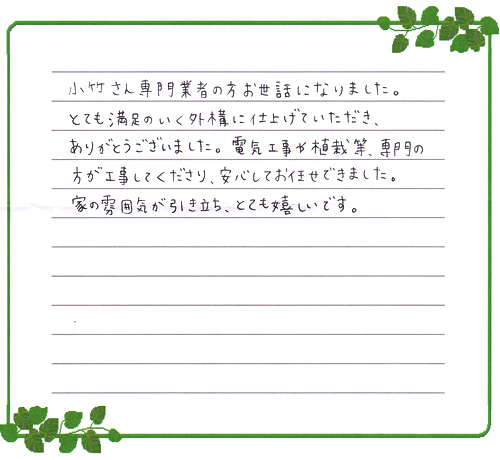 小竹さん専門業者の方お世話になりました。
とても満足のいく外構に仕上げていただき、
ありがとうございました。電気工事や植栽等、専門の
方が工事してくださり、安心してお任せできました。
家の雰囲気が引き立ち、とても嬉しいです。